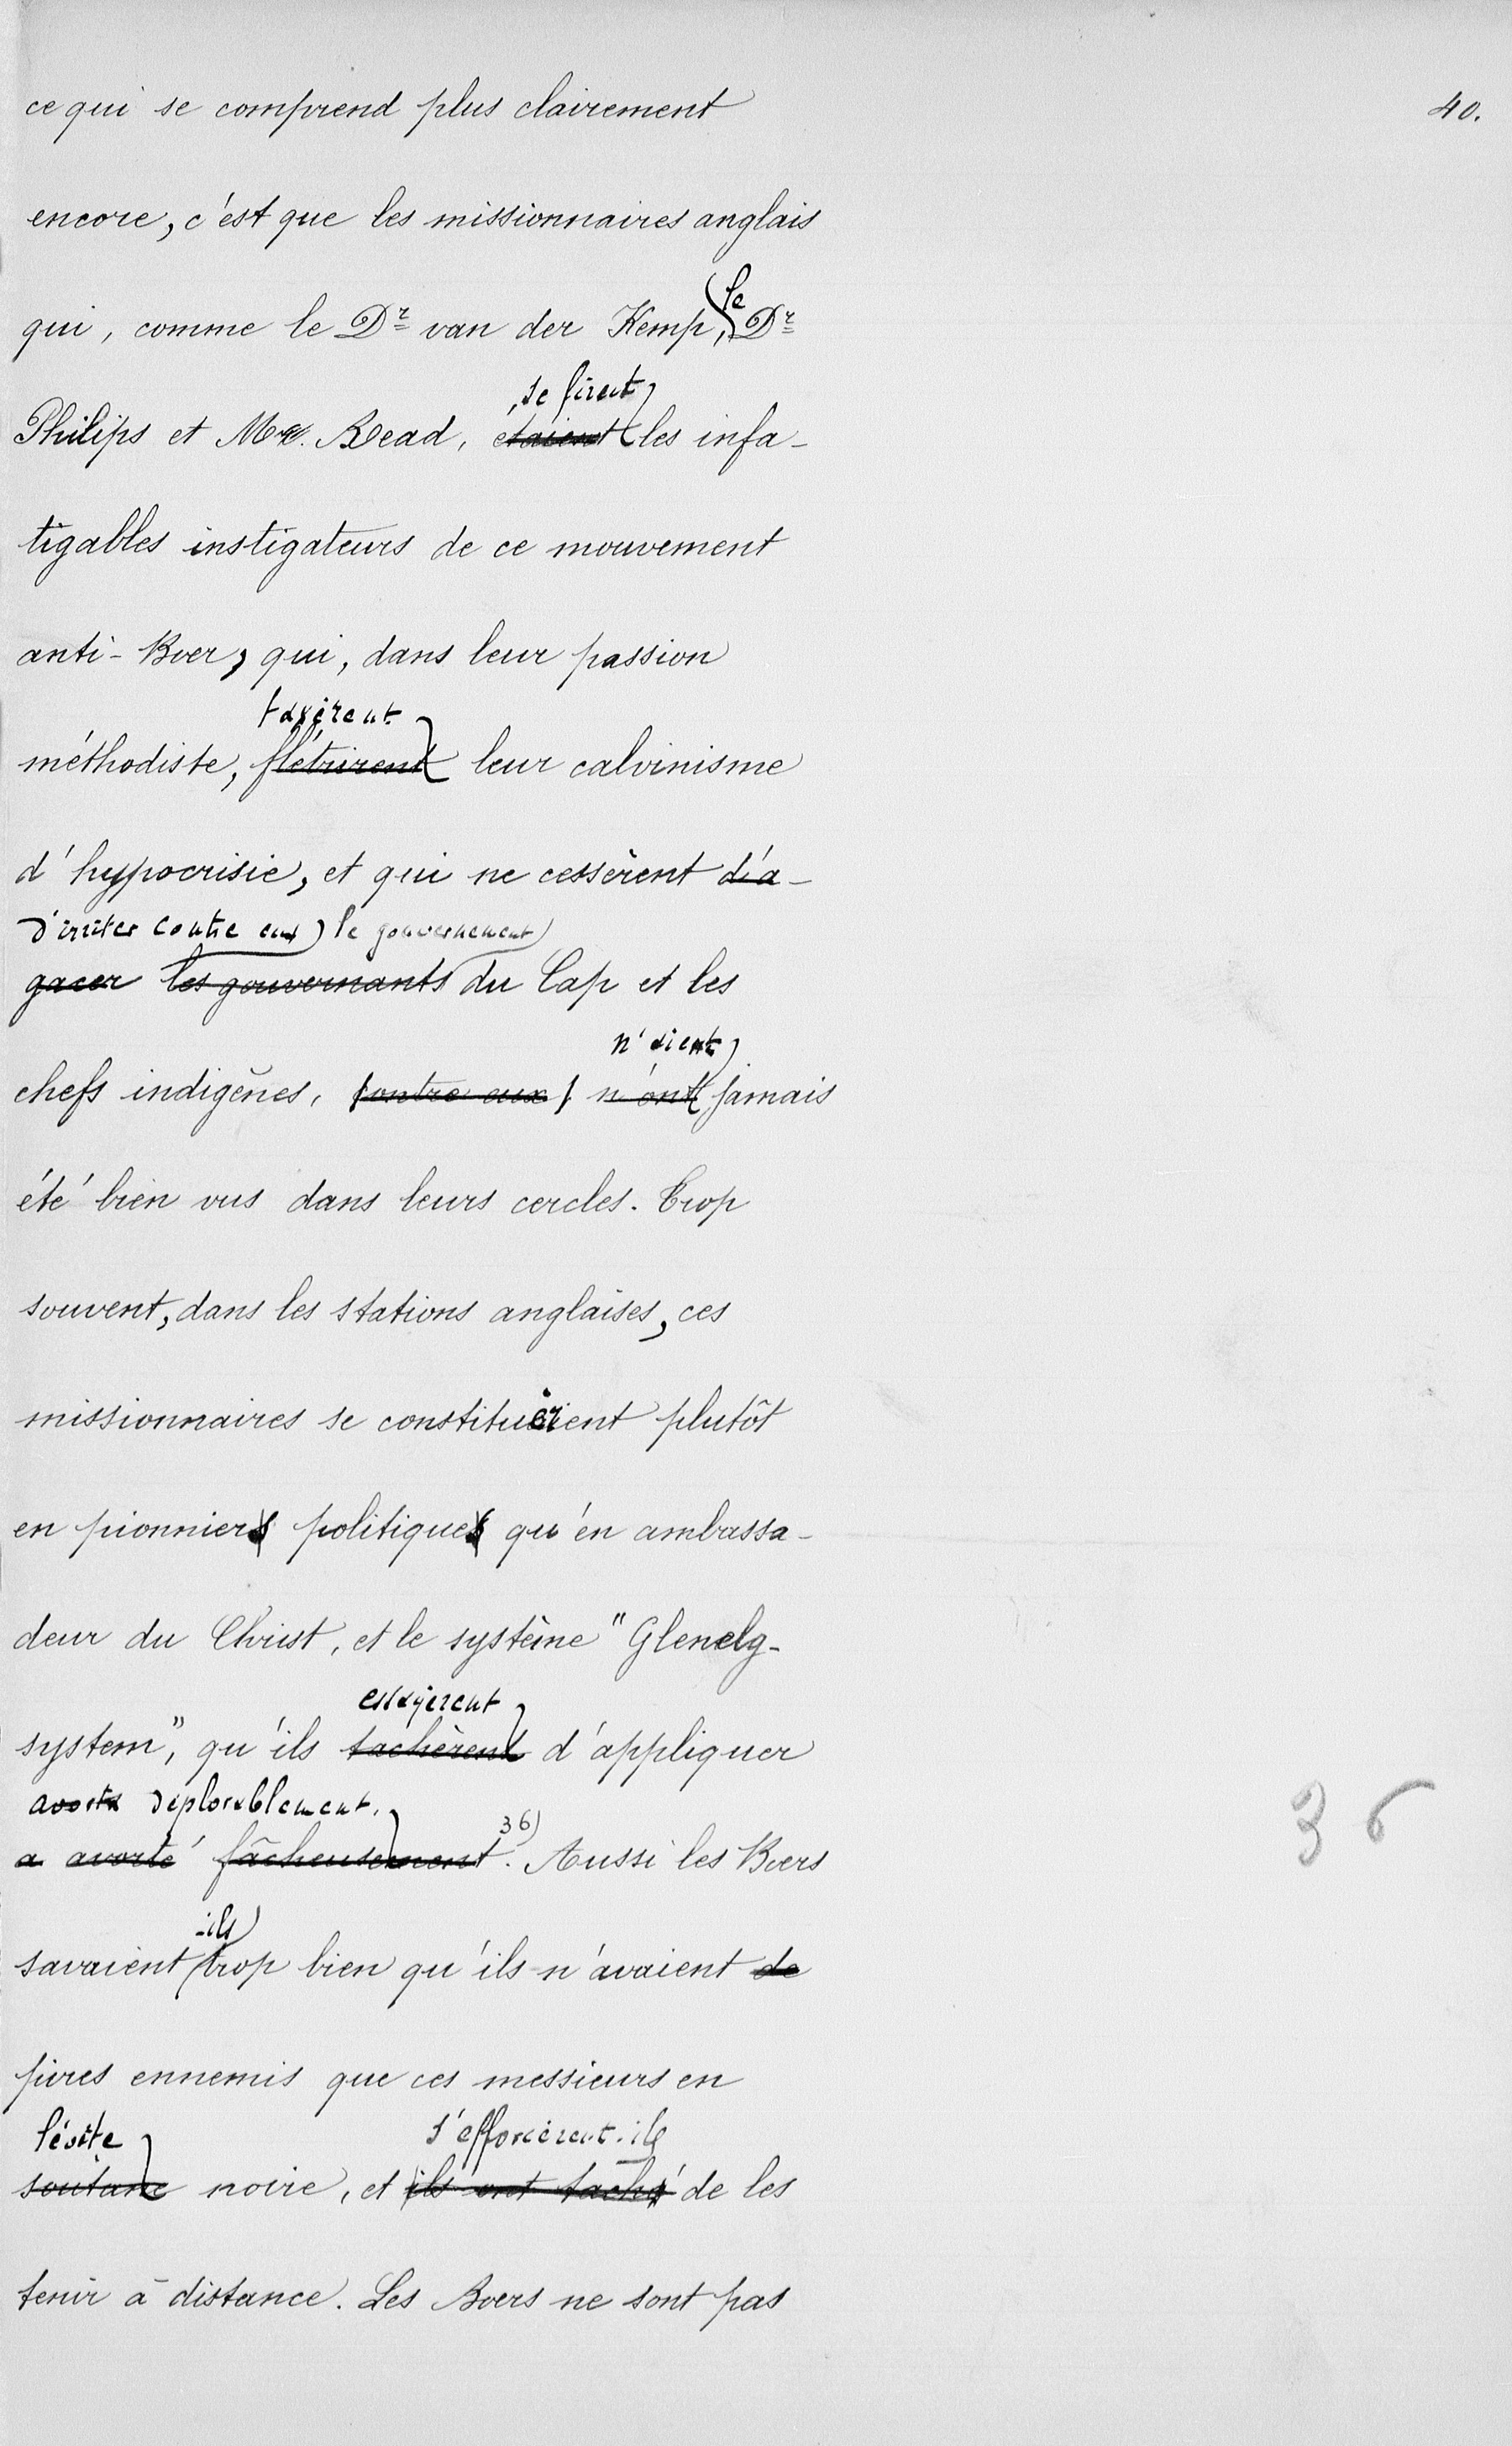 ce qui se comprend plus clairement
40.
encore, c'est que les missionnaires anglais
le
qui, comme le Dr van der Kemp, Dr
se firent
Philips et Mr. Read, étaient les infa-
tigables instigateurs de ce mouvement
anti-Boer, qui, dans leur passion
taxèrent
méthodiste, flétrirent leur calvinisme
d'hypocrisie, et qui ne cessèrent d'a-
d'irriter contre eux le gouvernement
gacer les gouvernants du Cap et les
n'aient
chefs indigènes, contre eux, n'ont jamais
été bien vus dans leurs cercles. Trop
souvent, dans les stations anglaises, ces
missionnaires se constituèrent plutôt
en pionniers politiques qu'en ambassa-
deur du Christ, et le système "Glenelg-
essayèrent
system", qu'ils tachèrent d'appliquer
avorta déplorablement.
36
a avorté fâcheusement. 36) Aussi les Boers
-ils
savaient trop bien qu'ils n'avaient de
pires ennemis que ces messieurs en
lévite s'efforcèrent-ils
soutane noire, et ils ont taché de les
tenir à distance. Les Boers ne sont pas